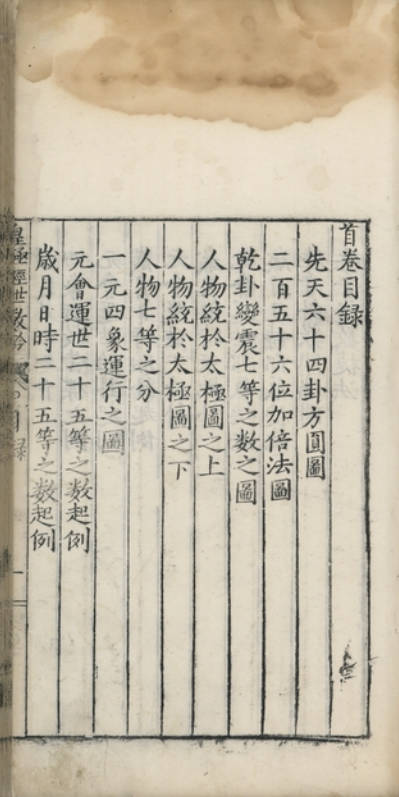 首卷目録
先天六十四卦方圓圖
二百五十六位加倍法圖
乾卦變震七等之数之圖
人物統於太極圖之上
人物統於太極圖之下
人物七等之分
一元四象運行之圖
元會運世二十五等之数起例
歲月日時二十五等之数起例
皇極經世
目録
一